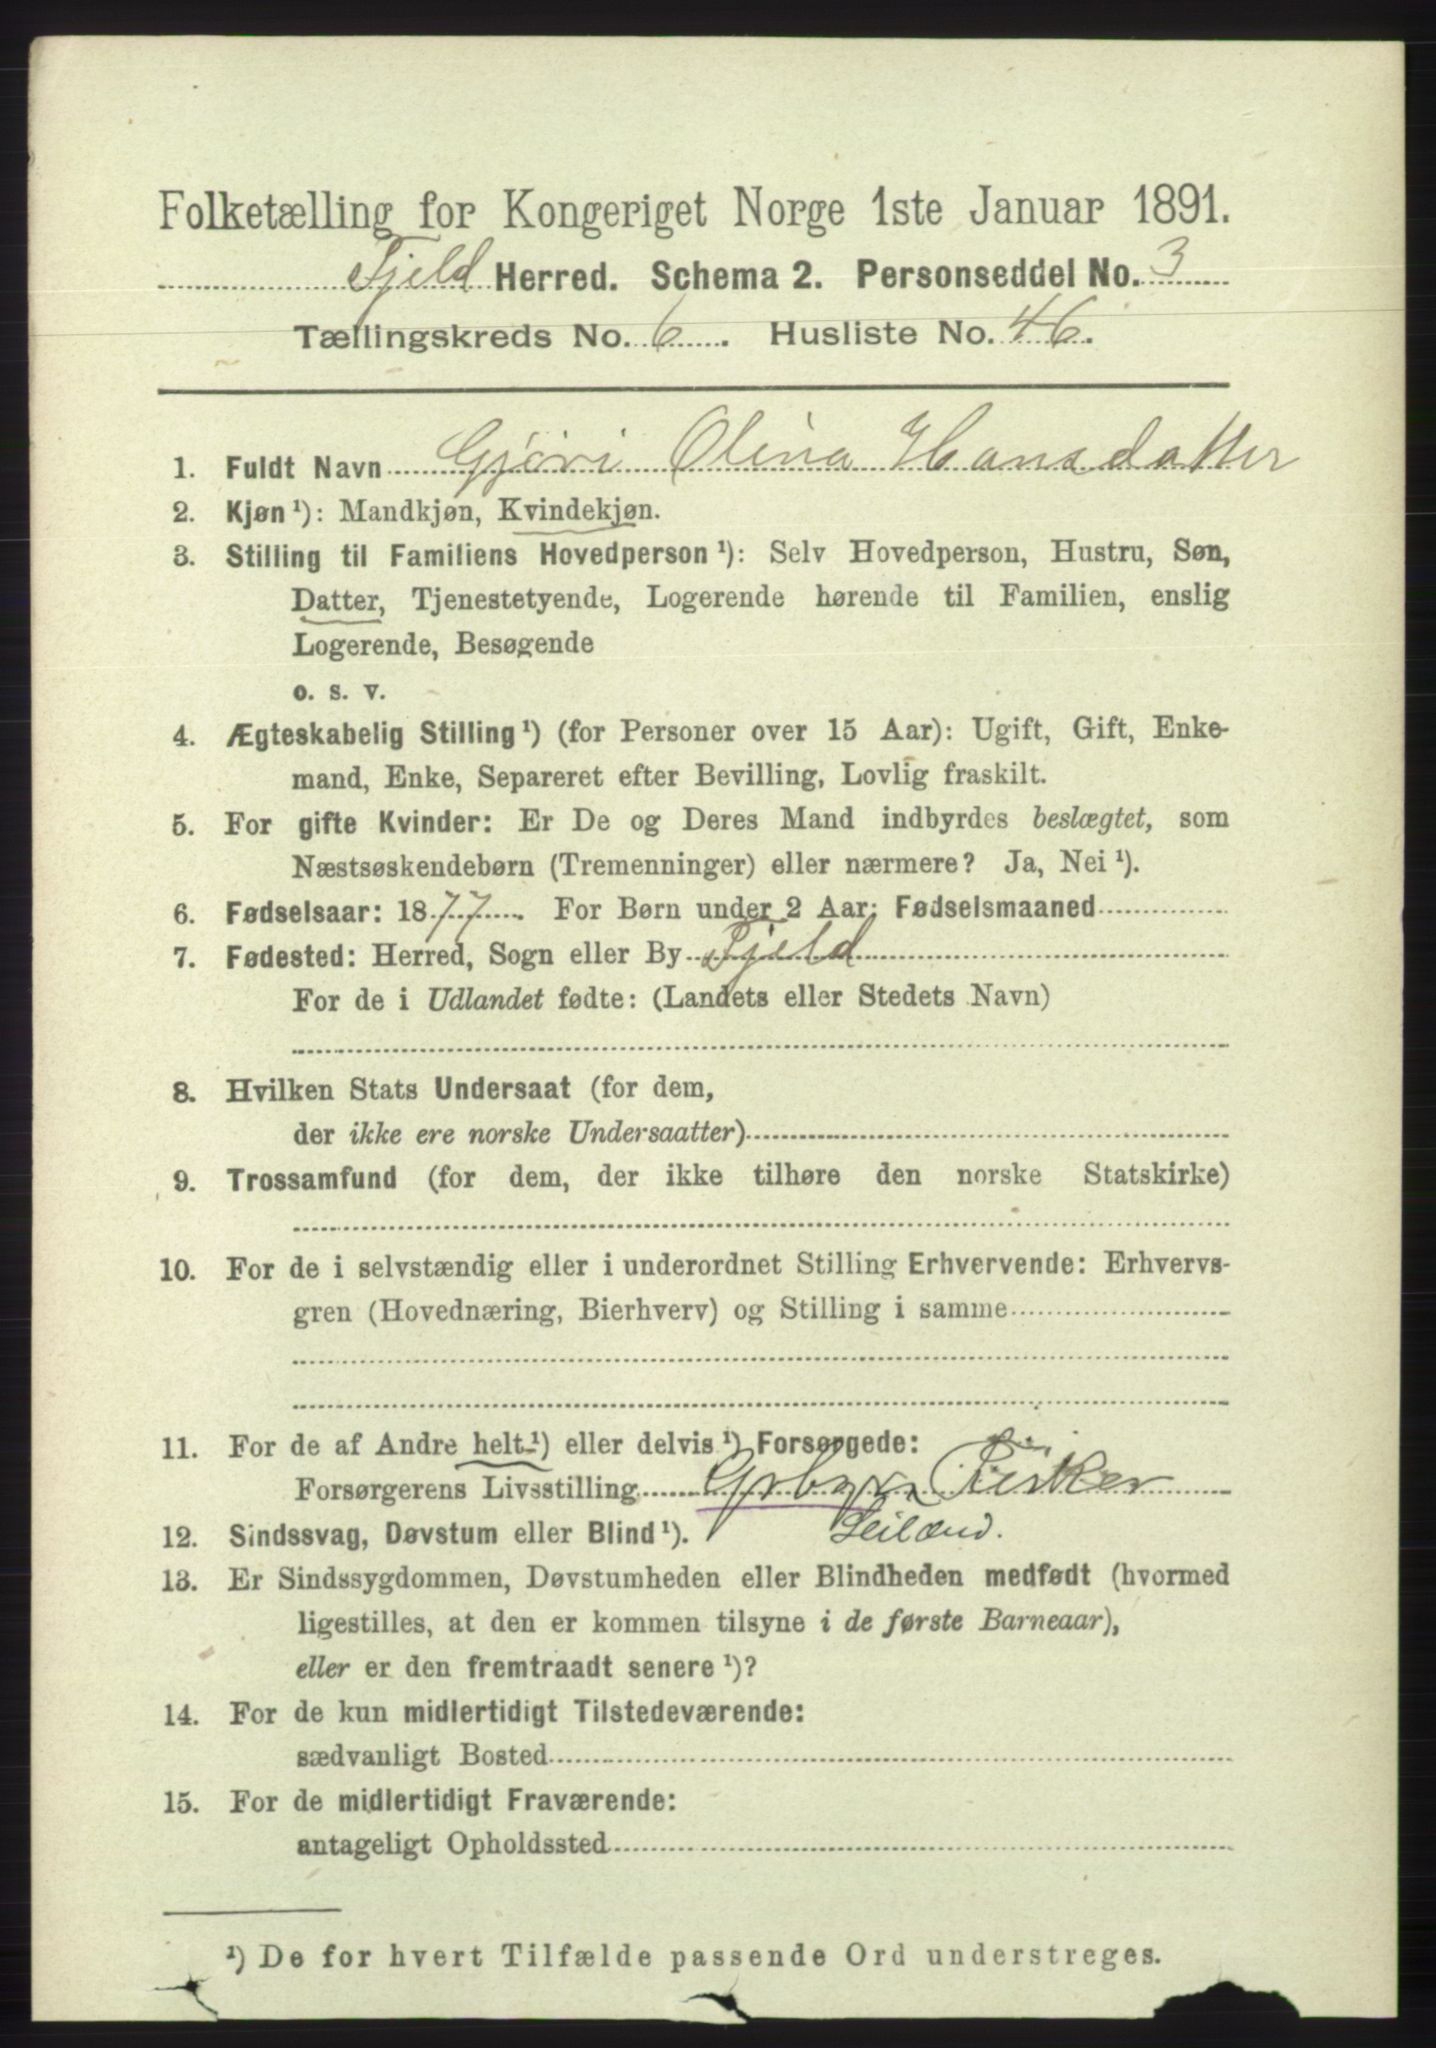 Folketælling for Kongeriget Norge 1ste Januar 1891.
Fjeld Herred. Schema 2. Personseddel No. 3
Tællingskreds No. 6. Husliste No. 46.
1. Fuldt Navn Gjøri Olina Hansdatter
2. Kjøn ¹): Mandkjøn, Kvindekjøn.
3. Stilling til Familiens Hovedperson ¹): Selv Hovedperson, Hustru, Søn,
Datter, Tjenestetyende, Logerende hørende til Familien, enslig
Logerende, Besøgende
o. s. v.
4. Ægteskabelig Stilling ¹) (for Personer over 15 Aar): Ugift, Gift, Enke-
mand, Enke, Separeret efter Bevilling, Lovlig fraskilt.
5. For gifte Kvinder: Er De og Deres Mand indbyrdes beslægtet, som
Næstsøskendebørn (Tremenninger) eller nærmere? Ja, Nei ¹).
6. Fødselsaar: 1877. For Børn under 2 Aar: Fødselsmaaned
7. Fødested: Herred, Sogn eller By Fjeld
For de i Udlandet fødte: (Landets eller Stedets Navn)
8. Hvilken Stats Undersaat (for dem,
der ikke ere norske Undersaatter)
9. Trossamfund (for dem, der ikke tilhøre den norske Statskirke)
10. For de i selvstændig eller i underordnet Stilling Erhvervende: Erhvervs-
gren (Hovednæring, Bierhverv) og Stilling i samme
11. For de af Andre helt ¹) eller delvis ¹) Forsørgede:
Forsørgerens Livsstilling Grbgr, Fisker
12. Sindssvag, Døvstum eller Blind ¹). Leilænd.
13. Er Sindssygdommen, Døvstumheden eller Blindheden medfødt (hvormed
ligestilles, at den er kommen tilsyne i de første Barneaar),
eller er den fremtraadt senere ¹)?
14. For de kun midlertidigt Tilstedeværende:
sædvanligt Bosted
15. For de midlertidigt Fraværende:
antageligt Opholdssted
¹) De for hvert Tilfælde passende Ord understreges.